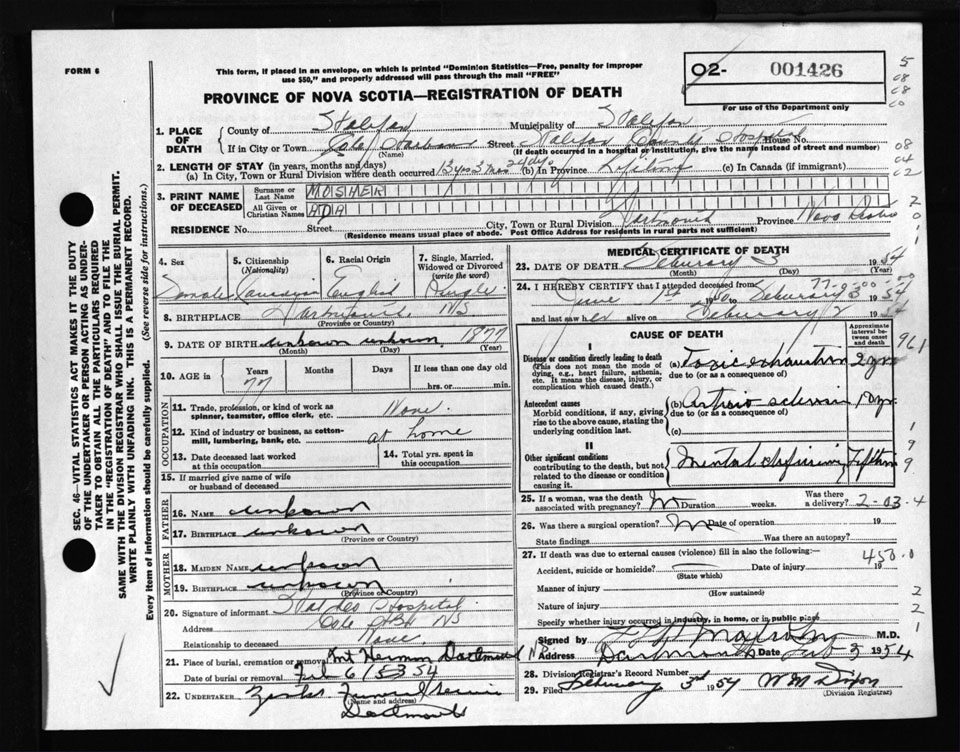 FORM 6
This form, if placed in an envelope, on which is printed "Dominion Statistics—Free, penalty for improper
use $50," and properly addressed will pass through the mail "FREE"
PROVINCE OF NOVA SCOTIA—REGISTRATION OF DEATH
O2- 001426
For use of the Department only
SEC. 46—VITAL STATISTICS ACT MAKES IT THE DUTY
OF THE UNDERTAKER OR PERSON ACTING AS UNDER-
TAKER TO OBTAIN ALL THE PARTICULARS REQUIRED
IN THE "REGISTRATION OF DEATH" AND TO FILE THE
SAME WITH THE DIVISION REGISTRAR WHO SHALL ISSUE THE BURIAL PERMIT.
WRITE PLAINLY WITH UNFADING INK. THIS IS A PERMANENT RECORD.
Every item of information should be carefully supplied. (See reverse side for instructions.)
1. PLACE OF DEATH
County of Halifax Municipality of Halifax
If in City or Town Cole Harbour Street Halifax County Hospital House No.
(Name) (If death occurred in a hospital or institution, give the name instead of street and number)
2. LENGTH OF STAY (in years, months and days)
(a) In City, Town or Rural Division where death occurred 13 yrs 3 mos 24 dys (b) In Province Lifetime (c) In Canada (if immigrant)
3. PRINT NAME OF DECEASED
Surname or Last Name MOSHER
All Given or Christian Names ADA
RESIDENCE No. Street City, Town or Rural Division Dartmouth Province Nova Scotia
(Residence means usual place of abode. Post Office Address for residents in rural parts not sufficient)
4. Sex
5. Citizenship (Nationality)
6. Racial Origin
7. Single, Married, Widowed or Divorced (write the word)
Female Canadian English Single
8. BIRTHPLACE Dartmouth NS
(Province or Country)
9. DATE OF BIRTH unknown unknown 1877
(Month) (Day) (Year)
10. AGE in Years Months Days If less than one day
77 hrs. or min.
OCCUPATION
11. Trade, profession, or kind of work as
spinner, teamster, office clerk, etc. None
12. Kind of industry or business, as cotton-
mill, lumbering, bank, etc. at home
13. Date deceased last worked
at this occupation
14. Total yrs. spent in
this occupation
15. If married give name of wife
or husband of deceased
FATHER
16. Name unknown
17. Birthplace unknown
(Province or Country)
MOTHER
18. Maiden Name unknown
19. Birthplace unknown
(Province or Country)
20. Signature of informant Hospital
Address Cole NS
Relationship to deceased None
21. Place of burial, cremation or removal Mt Hermon Dartmouth NS
Date of burial or removal Feb 6/ 54
22. UNDERTAKER Funeral Service
(Name and address)
Dartmouth
MEDICAL CERTIFICATE OF DEATH
23. DATE OF DEATH February 3 1954
(Month) (Day) (Year)
77-0-00-00
24. I HEREBY CERTIFY that I attended deceased from
June 1st February 3 1954
and last saw her alive on February 2 1954
CAUSE OF DEATH
Approximate interval between onset and death
I
Disease or condition directly leading to death
(This does not mean the mode of
dying, e.g., heart failure, asthenia,
etc. It means the disease, injury, or
complication which caused death.)
(a) Toxic exhaustion 2 yrs
due to (or as a consequence of)
Antecedent causes
Morbid conditions, if any, giving
rise to the above cause, stating the
underlying condition last.
(b) Arterio sclerosis
due to (or as a consequence of)
(c)
II
Other significant conditions
contributing to the death, but not
related to the disease or condition
causing it.
Mental deficiency Lifetime
25. If a woman, was the death
associated with pregnancy? No Duration weeks. Was there
a delivery? 2-03-4
26. Was there a surgical operation? No Date of operation 19
State findings Was there an autopsy?
27. If death was due to external causes (violence) fill in also the following:— 450.0
Accident, suicide or homicide? Date of injury 19
(State which)
Manner of injury
(How sustained)
Nature of injury
Specify whether injury occurred in industry, in home, or in public place
Signed by M.D.
Address Dartmouth Date Feb 3 1954
28. Division Registrar's Record Number
29. Filed February 3rd 1954 W M Dixon
(Division Registrar)